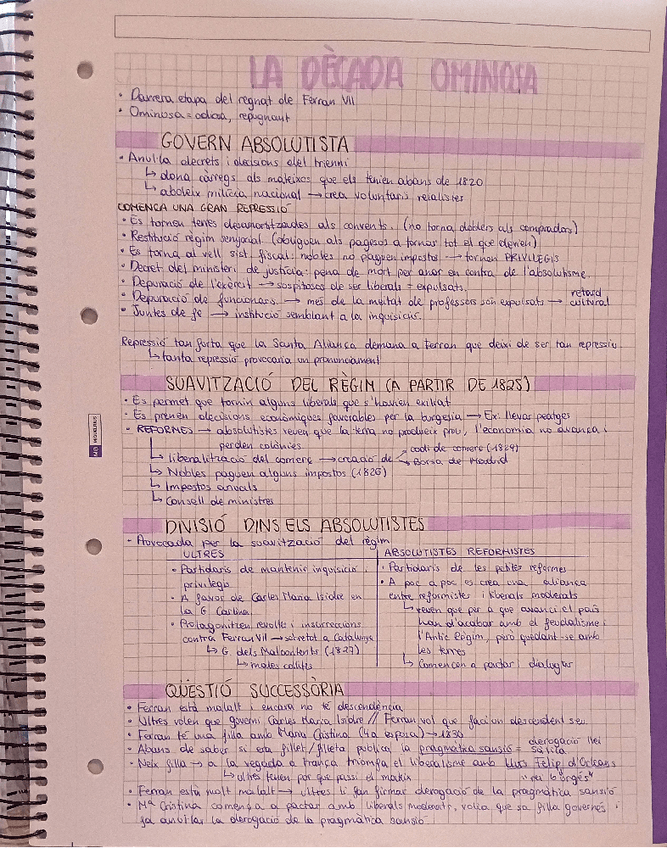 LA DÈCADA OMINOSA
• Darrera etapa del regnat de Ferran VII
• Ominosa = odiosa, repugnant
GOVERN ABSOLUTISTA
• Anul·la decrets i decisions del trienni
↳ dona càrregs als mateixos que els tenien abans de 1820
↳ aboleix milícia nacional → crea voluntaris reialistes
COMENÇA UNA GRAN REPRESSIÓ
• Es tornen terres desamortitzades als convents. (no torna doblers als compradors)
• Restitució règim senyorial (obliguen als pagesos a tornar tot el que deuen)
• Es torna al vell sist. fiscal: nobles no paguen impostos → tornen PRIVILEGIS
• Decret del ministeri de justícia: pena de mort per anar en contra de l'absolutisme.
• Depuració de l'exèrcit → sospitosos de ser liberals = expulsats.
• Depuració de funcionaris. → més de la meitat de professors són expulsats → retard cultural
• Juntes de fe → institució semblant a la inquisició.
Repressió tan forta que la Santa Aliança demana a Ferran que deixi de ser tan repressiu.
↳ tanta repressió provocaria un pronunciament
SUAVITZACIÓ DEL RÈGIM (A PARTIR DE 1825)
• Es permet que tornin alguns liberals que s'havien exiliat
• Es prenen decisions econòmiques favorables per la burgesia → Ex: llevar peatges
• REFORMES → absolutistes veuen que la terra no produeix prou, l'economia no avança i
perden colònies
↳ liberalització del comerç → creació de codi de comerç (1829)
Borsa de Madrid
↳ Nobles paguen alguns impostos (1826)
↳ Impostos anuals
↳ Consell de ministres
DIVISIÓ DINS ELS ABSOLUTISTES
• Provocada per la suavització del règim
ULTRES
• Partidaris de mantenir inquisició i
privilegis
• A favor de Carles Maria Isidre en
la G Carlina.
• Protagonitzen revolts i insurreccions
contra Ferran VII → sobretot a Catalunya
↳ G dels Malcontents (1827)
↳ males collites
ABSOLUTISTES REFORMISTES
• Partidaris de les petites reformes
• A poc a poc es crea una aliança
entre reformistes i liberals moderats
↳ veuen que per a que avanci el país
han d'acabar amb el feudalisme i
l'Antic Règim, però quedant-se amb
les terres
↳ Comencen a pactar, dialogar
QÜESTIÓ SUCCESSÒRIA
• Ferran està malalt i encara no té descendència
• Ultres volen que governi Carles Maria Isidre // Ferran vol que faci un descendent seu
• Ferran té una filla amb Maria Cristina (4a esposa) → 1830
• Abans de saber si era fillet/filleta publica la pragmàtica sanció = derogació llei sàlica
• Neix filla → a la vegada a França triomfa el liberalisme amb Lluís Felip d'Orleans
↳ ultres tenen por que passi el mateix
• Ferran està molt malalt → ultres li fan firmar derogació de la pragmàtica sanció
• Mª Cristina comença a pactar amb liberals moderats, volia que sa filla governés i
fa anul·lar la derogació de la pragmàtica sanció